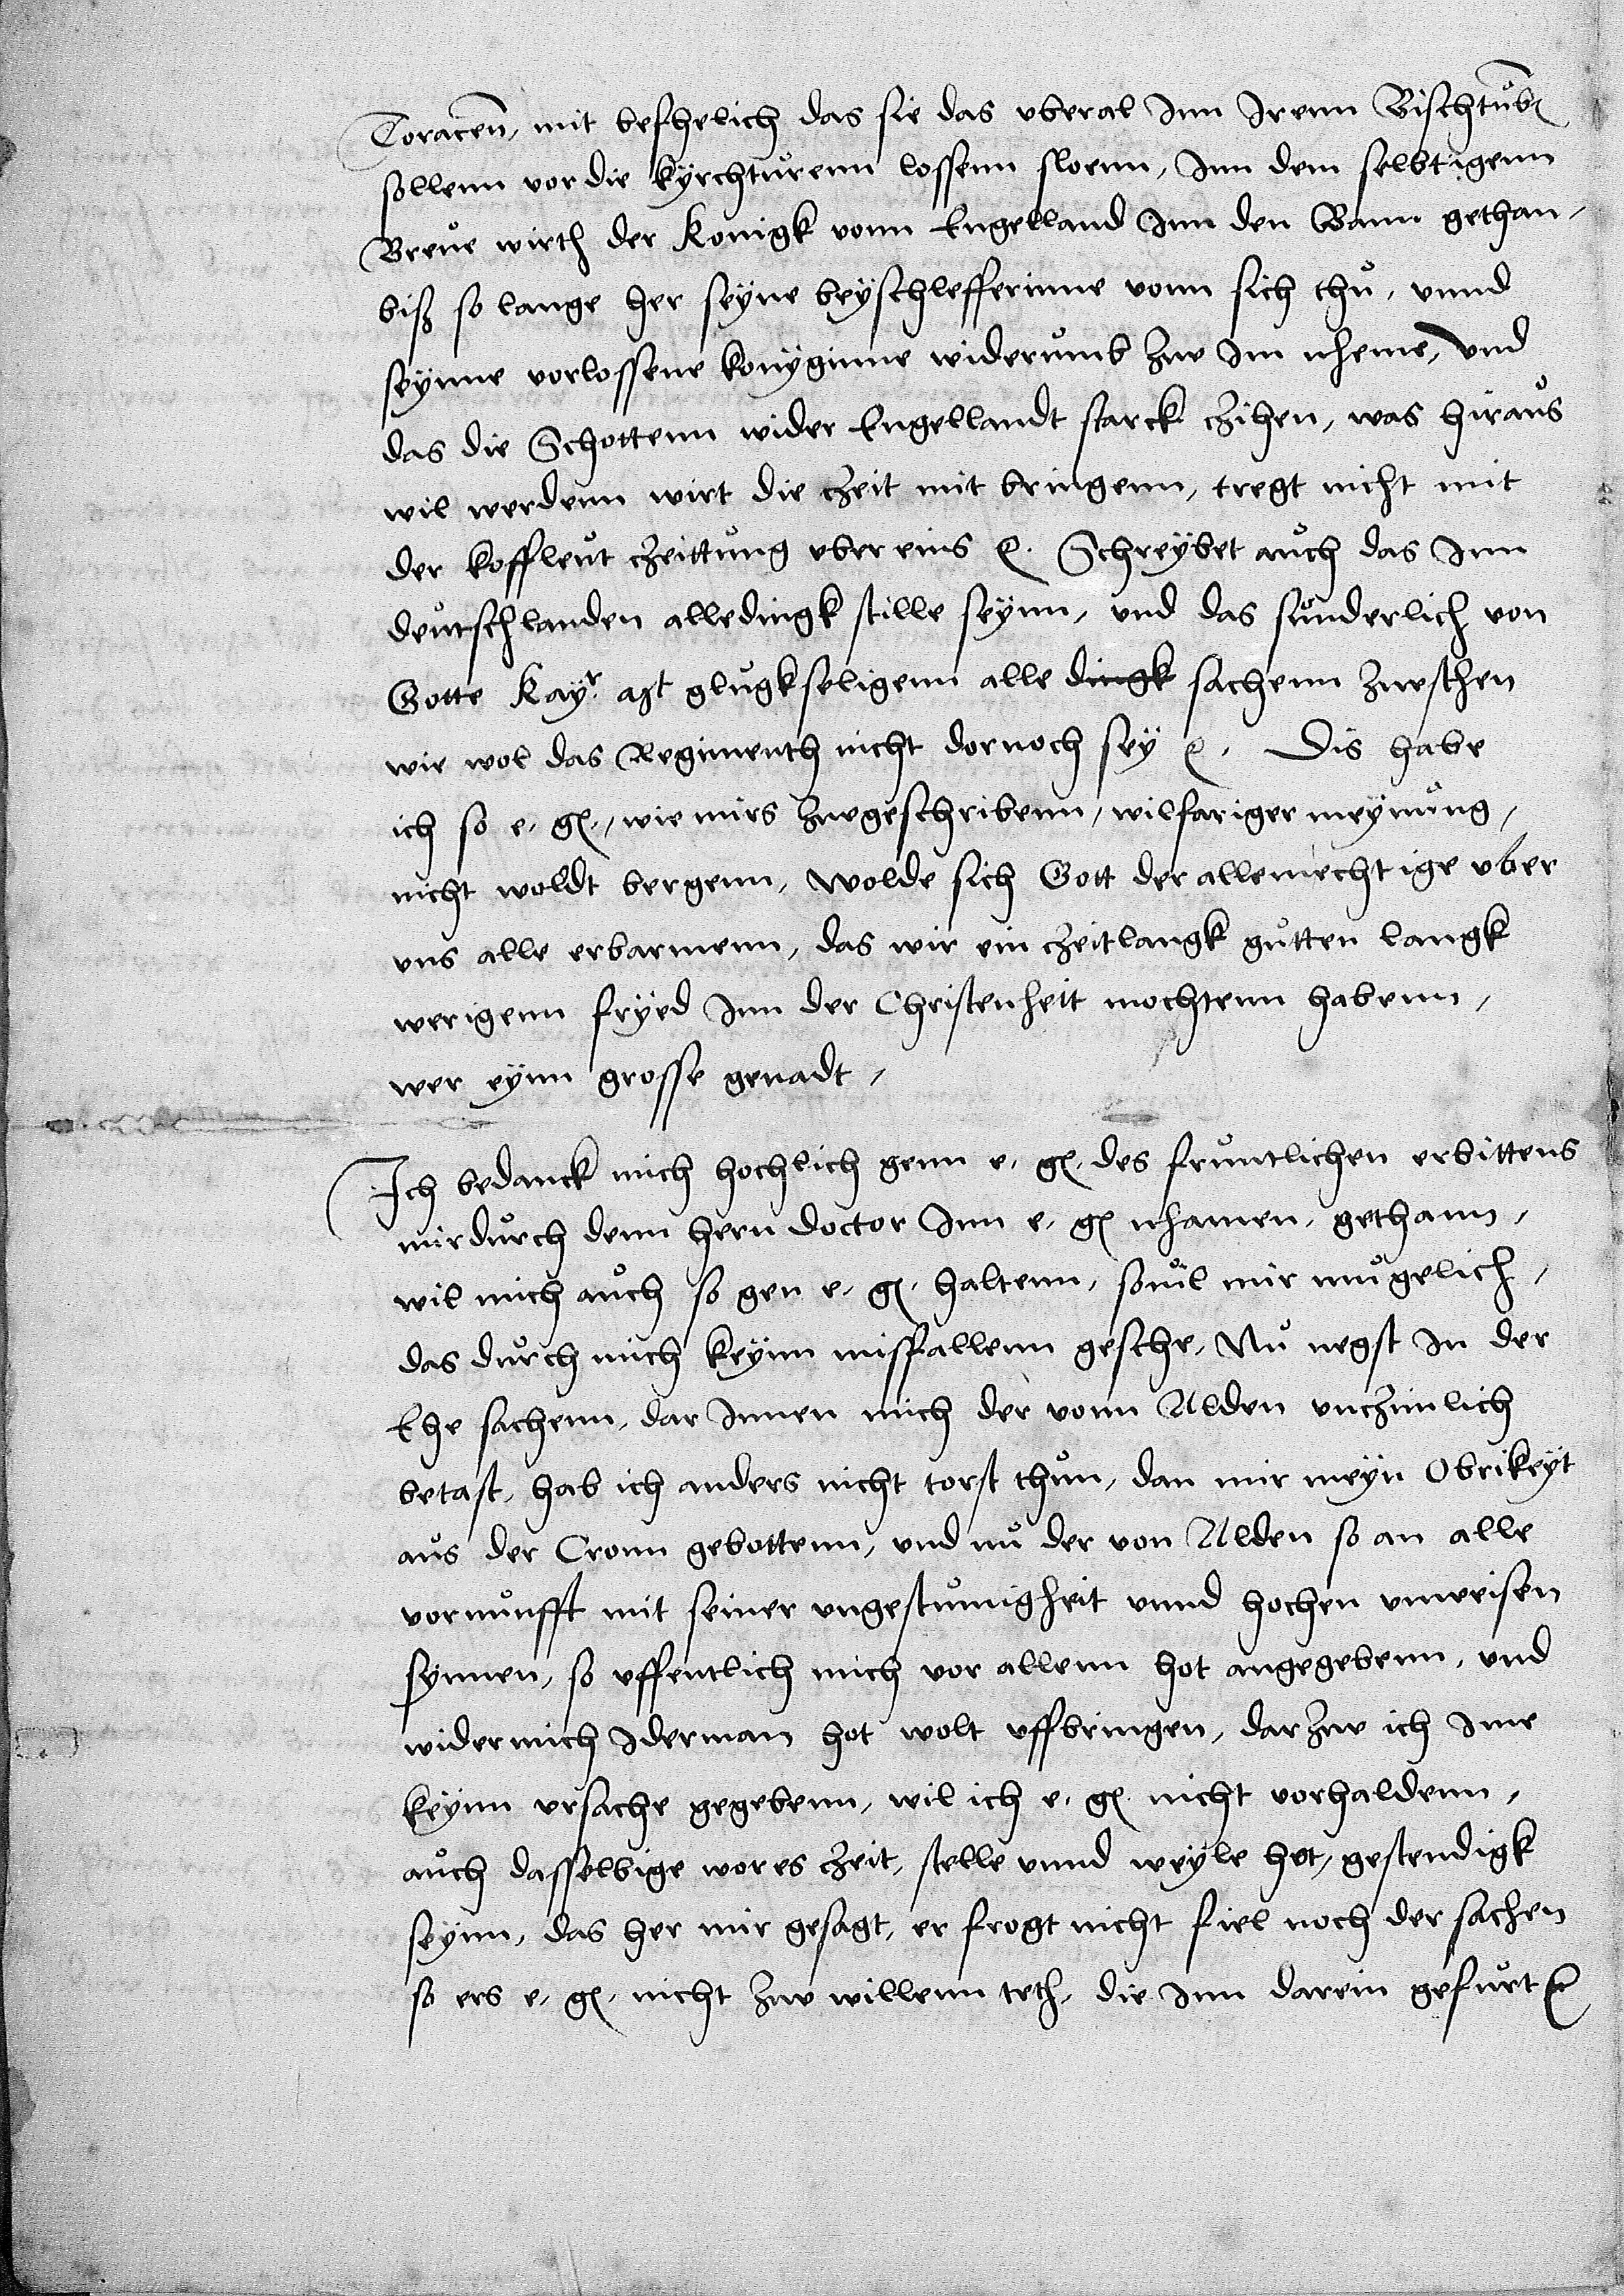 Toracen̄, mit befhelich das sie das vberal Inn Irenn Bischtůb
sollenn vor die kyrchtůrenn lossenn sloenn, Inn dem selbtigenn
Breůe wirth der Konigk vonn Engelland Inn den Bann gethan,
biß so lange her seyne beyschlefferinne vonn sich thů, vnnd
seynne vorlossene konyginne widerůmb zw im nheme, vnd
das die Schottenn wider Engellandt starck czihen, was hiraůs
wil werdenn wirt die czeit mit bringenn, tregt nicht mit
der koffleůt czeittůng vber eins ⁊c. Schreybet aůch das Inn
deůtschlanden alledingk stille seynn, vnd das sůnderlich von
Gotte Kayr. Mt glůgkseligenn alle dingk sachenn zwsthen
wie wol das Regimenth nicht dornoch sey ⁊c. Dis habe
ich so e. g., wie mirs zwgeschribenn, wilfariger meynůng,
nicht woldt bergenn, wolde sich Gott der allemechtige vber
vns alle erbarmenn, das wir ein czeitlangk gůtten langk
werigenn fryed Inn der Christenheit mochtenn habenn,
wer eynn grosse genadt,
Ich bedanck mich hochlich genn e. g. des frůntlichen erbittens
mir důrch denn hern doctor Inn e. g. nhamen, gethann,
wil mich aůch so gen e. g. haltenn, souil mir můgelich,
das důrch mich keynn missfallenn geschee, Nů negst in der
Ehe sachenn, dar Innen mich der vonn Alden vnczimlich
betast, hab ich anders nicht torst thůn, dan mir meyn Obrikeyt
aůs der Cronn gebottenn, vnd nů der von Alden so an alle
vornůnfft mit seiner vngestůmigheit vnnd hochen vnweisen
synnen, so vffentlich mich vor allenn hot angegebenn, vnd
wider mich Iderman hot wolt vffbringen, dar zw ich Ime
keynn vrsache gegebenn, wil ich e. g. nicht vorhaldenn,
aůch dasselbige wor es czeit, stelle vnnd weyle het, gestendigk
seynn, das her mir gesagt, er frogt nicht fiel noch der sachen
so ers e. g. nicht zw willenn teth, die Inn darein gefůrt ⁊c